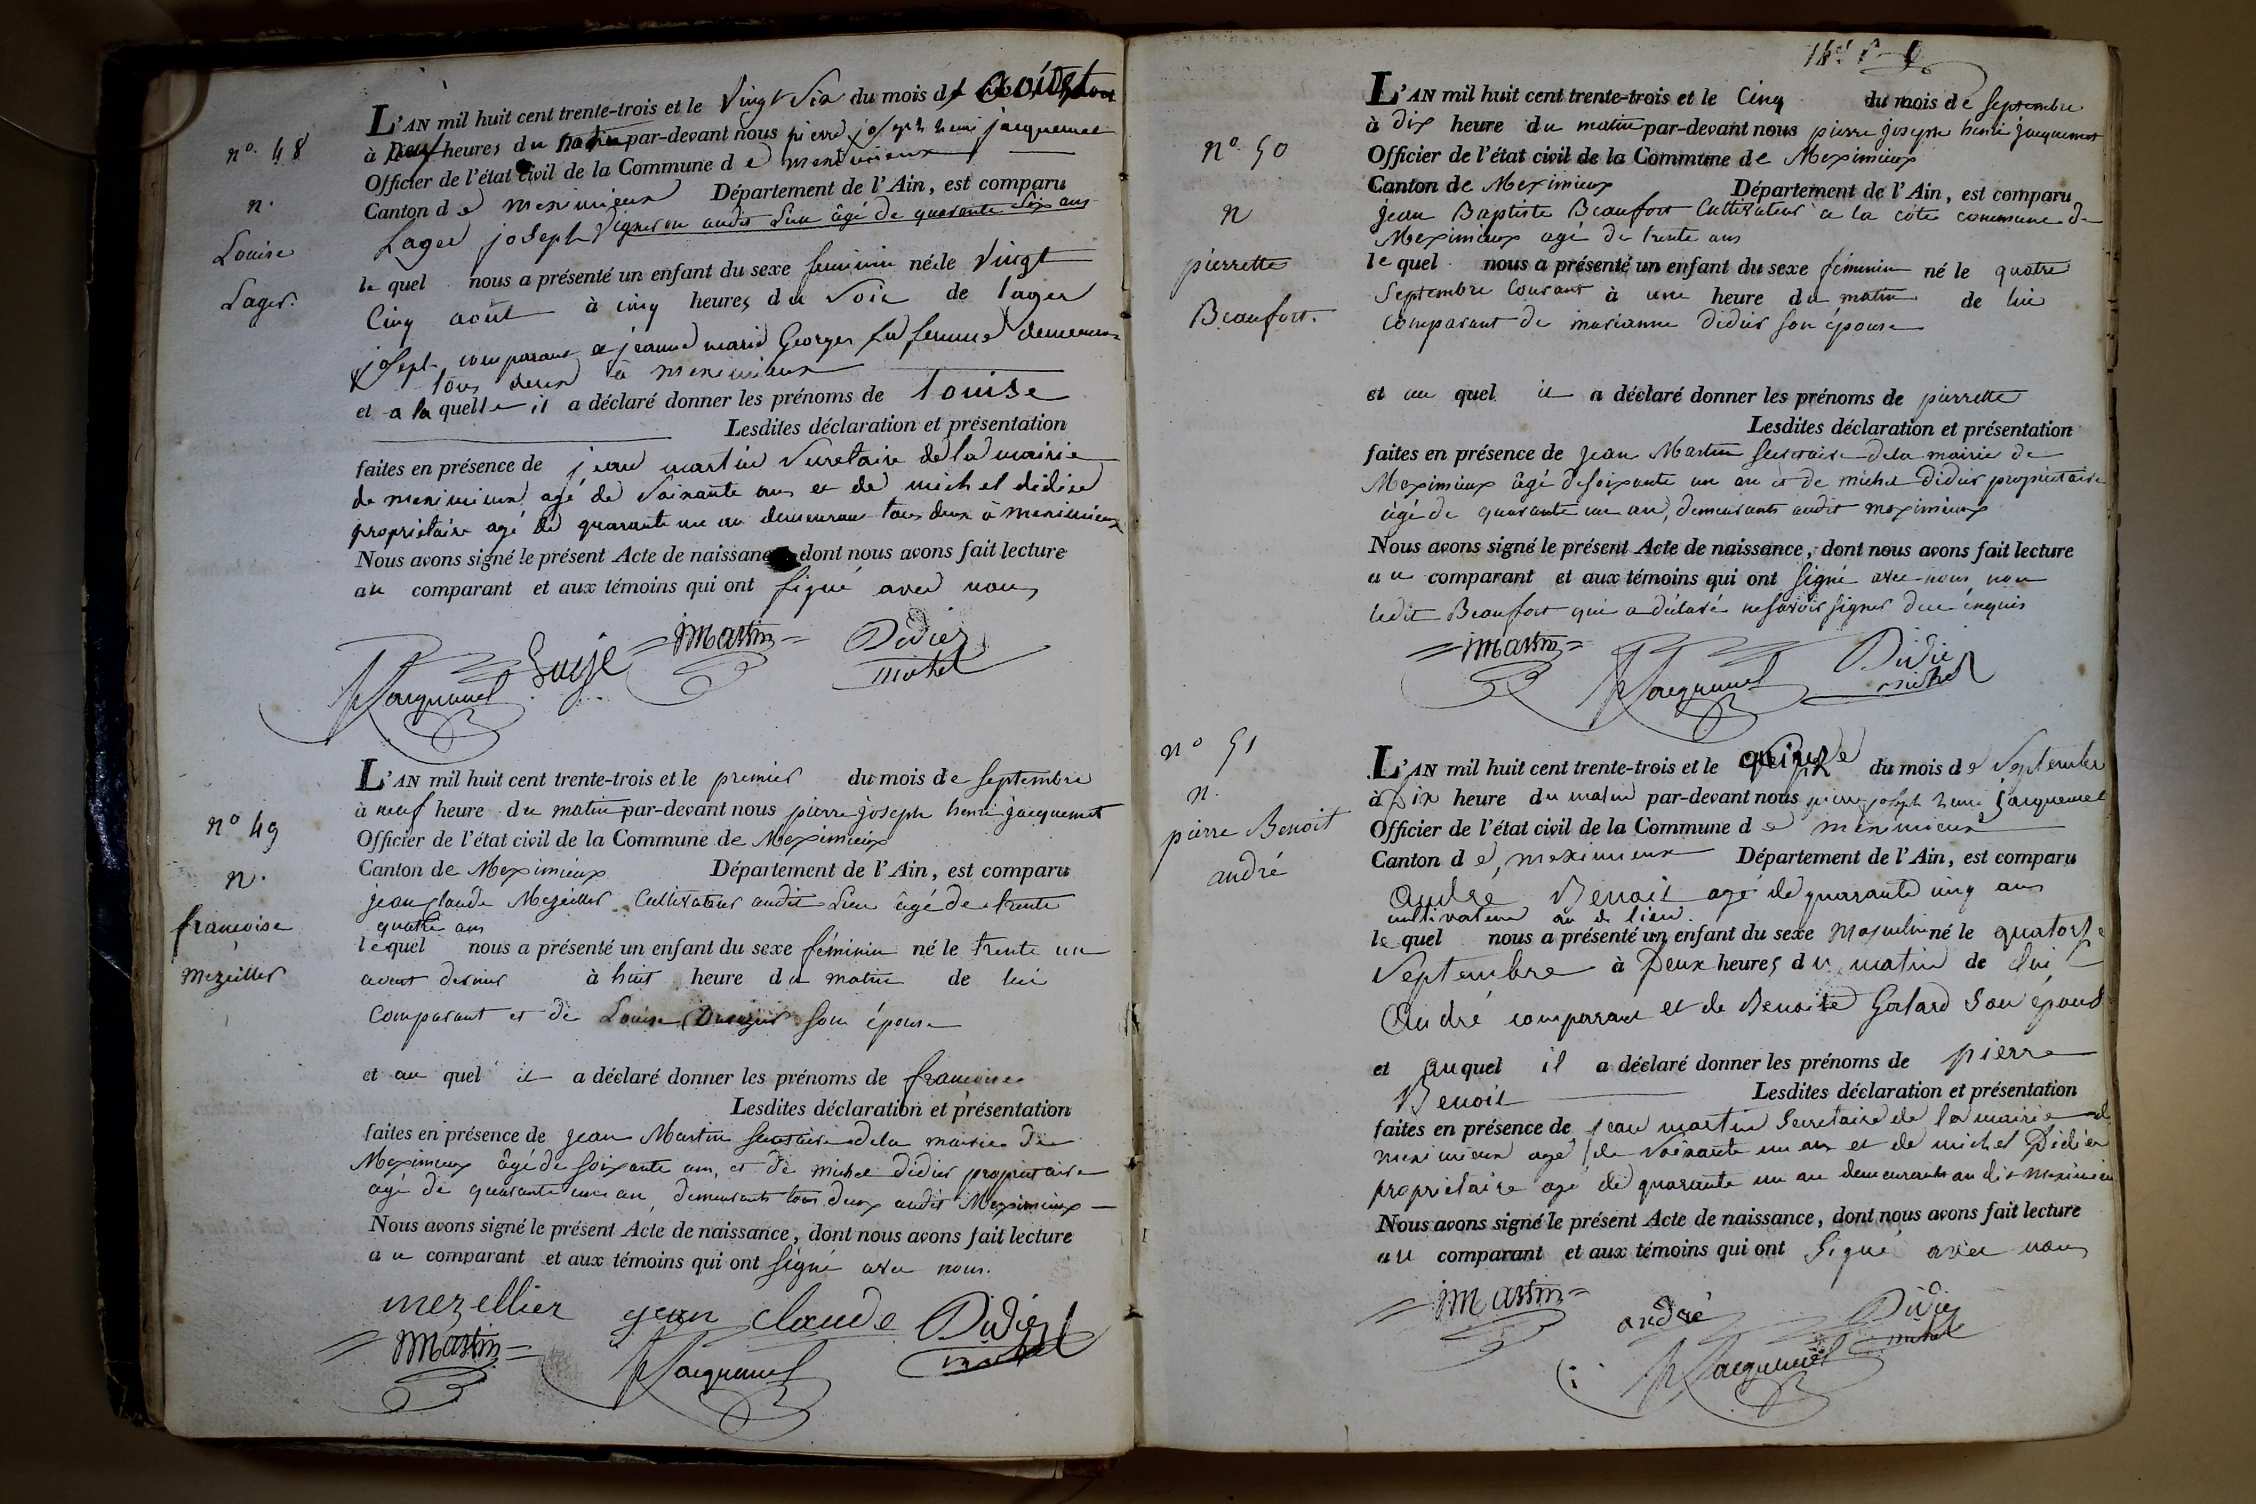 n.° 48
n.
Louise
Lager.
L'AN mil huit cent trente-trois et le vingt Six du mois d août
à neuf heures du matin par-devant nous pierre joseph henri jacquemet
Officier de l'état civil de la Commune de meximieux
Canton de meximieux Département de l'Ain, est comparu
Lager joseph Vigneron audit Lieu âgé de quarante Six ans
le quel nous a présenté un enfant du sexe feminin né le vingt
Cinq août à cinq heures du Soir de lager
joseph comparant et jeanne marie Georges sa femme demeurant
tous deux à meximieux
et a la quelle il a déclaré donner les prénoms de Louise
Lesdites déclaration et présentation
faites en présence de jean martin Secretaire de la mairie
de meximieux agé de Soixante ans et de michel didier
propriétaire agé de quarante un an demeurant tous deux à meximieux
Nous avons signé le présent Acte de naissance dont nous avons fait lecture
au comparant et aux témoins qui ont signé avec nous
Jacquemet
Martin
Didier
michel
n° 49
n.
françoise
mezeiller
L'AN mil huit cent trente-trois et le premier du mois de septembre
à neuf heure du matin par-devant nous pierre joseph henri jacquemet
Officier de l'état civil de la Commune de Meximieux
Canton de Meximieux Département de l'Ain, est comparu
jean claude Mezeiller Cultivateur audit Lieu âgé de trente
quatre ans
lequel nous a présenté un enfant du sexe féminin né le trente un
avout dernier à huit heure du matin de lui
comparant et de Louise son épouse
et au quel il a déclaré donner les prénoms de françoise
Lesdites déclaration et présentation
faites en présence de Jean Martin secretaire de la mairie de
Meximieux âgé de soixante ans, et de michel didier propriétaire
agé de quarante un an, demeurants tous deux audit Meximieux
Nous avons signé le présent Acte de naissance, dont nous avons fait lecture
au comparant et aux témoins qui ont signé avec nous.
mezellier jean claude Didier
michel
Martin
Jacquemet
n° 50
n
pierrette
Beaufort.
L'AN mil huit cent trente-trois et le Cinq du mois de septembre
à dix heure du matin par-devant nous pierre joseph henri jacquemet
Officier de l'état civil de la Commune de Meximieux
Canton de Meximieux Département de l'Ain, est comparu
jean Baptiste Beaufort Cultivateur a la côte commune de
Meximieux agé de trente ans
le quel nous a présenté un enfant du sexe féminin né le quatre
Septembre Courant à une heure du matin de lui
comparant de marianne didier son épouse
et au quel il a déclaré donner les prénoms de pierrette
Lesdites déclaration et présentation
faites en présence de Jean Martin secretaire de la mairie de
Meximieux âgé de soixante un an et de michel didier propriétaire
âgé de quarante un an, demeurants audit meximieux
Nous avons signé le présent Acte de naissance, dont nous avons fait lecture
au comparant et aux témoins qui ont signé avec nous non
ledit Beaufort qui a déclaré ne savoir signer de ce enquis
Martin
Jacquemet
Didier
michel
n° 51
n.
pierre Benoit
andré
L'AN mil huit cent trente-trois et le quinze du mois de Septembre
à Dix heure du matin par-devant nous pierre joseph henri jacquemet
Officier de l'état civil de la Commune de meximieux
Canton de meximieux Département de l'Ain, est comparu
André Benoit agé de quarante cinq ans
cultivateur au dt lieu.
le quel nous a présenté un enfant du sexe masculin né le quatorze
Septembre à Deux heures du matin de lui
André comparant et de Benoite Galard Son épouse
et auquel il a déclaré donner les prénoms de pierre
Benoit Lesdites déclaration et présentation
faites en présence de jean martin Secretaire de la mairie de
meximieux agé de Soixante un an et de michel Didier
propriétaire agé de quarante un an demeurants au dit meximieux
Nous avons signé le présent Acte de naissance, dont nous avons fait lecture
au comparant et aux témoins qui ont Signé avec nous
Martin
andré
Didier
michel
Jacquemet